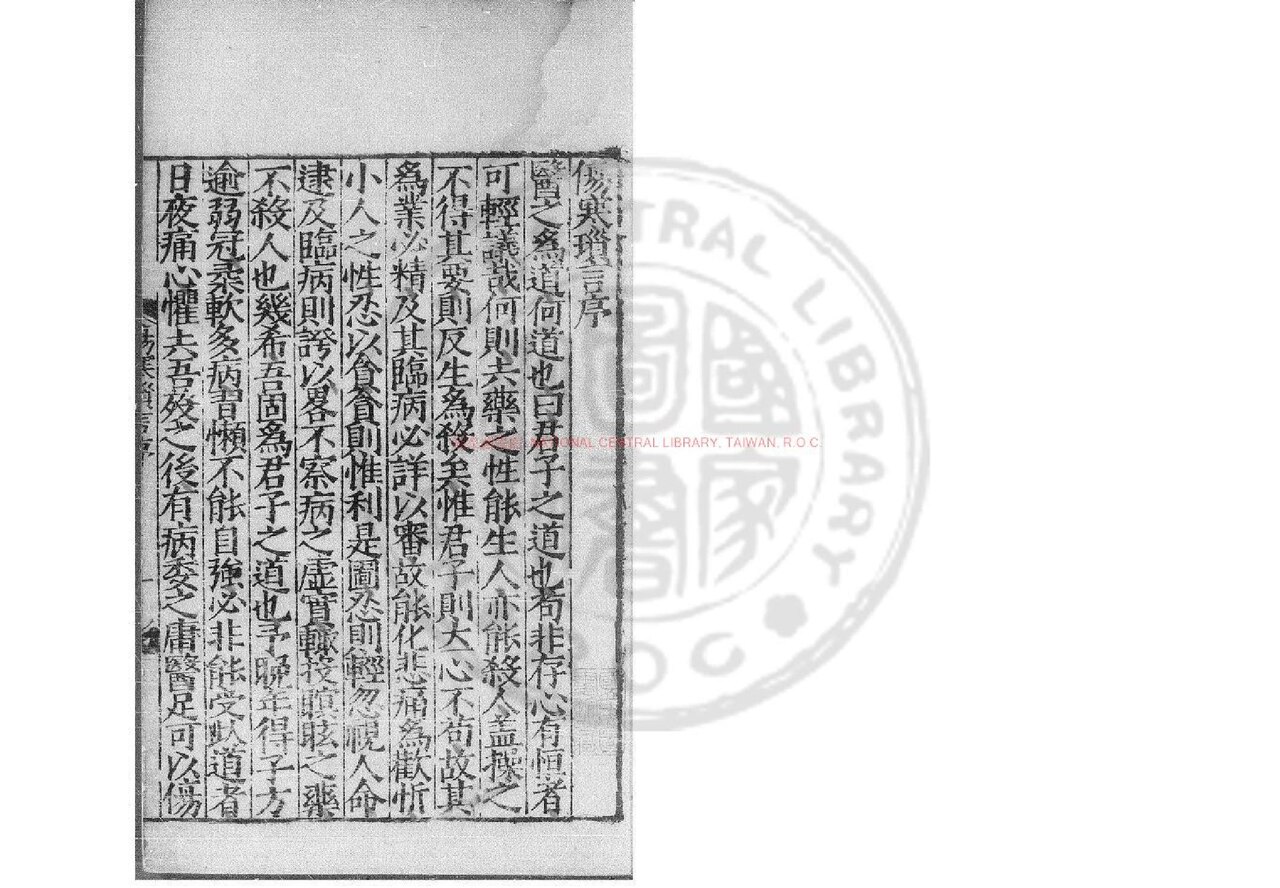 傷寒瑣言序
醫之爲道何道也曰君子之道也苟非存心有恒者
可輕議哉何則夫藥之性能生人亦能殺人盖操之
不得其要則反生爲殺矣惟君子則大心不苟故其
爲業必精及其臨病必詳以審故能化悲痛爲歡忻
小人之性忍以貪貪則惟利是圖忍則輕忽視人命
逮及臨病則誇以畧不察病之虛實輙投瞑眩之藥
不殺人也幾希吾固爲君子之道也予晚年得子方
逾弱冠柔軟多病習懶不能自強必非能受此道者
日夜痛心懼夫吾殁之後有病委之庸醫足可以傷
傷寒瑣言序
一
NATIONAL CENTRAL LIBRARY, TAIWAN, R.O.C
CENTRAL LIBRARY
ROC
國家圖書